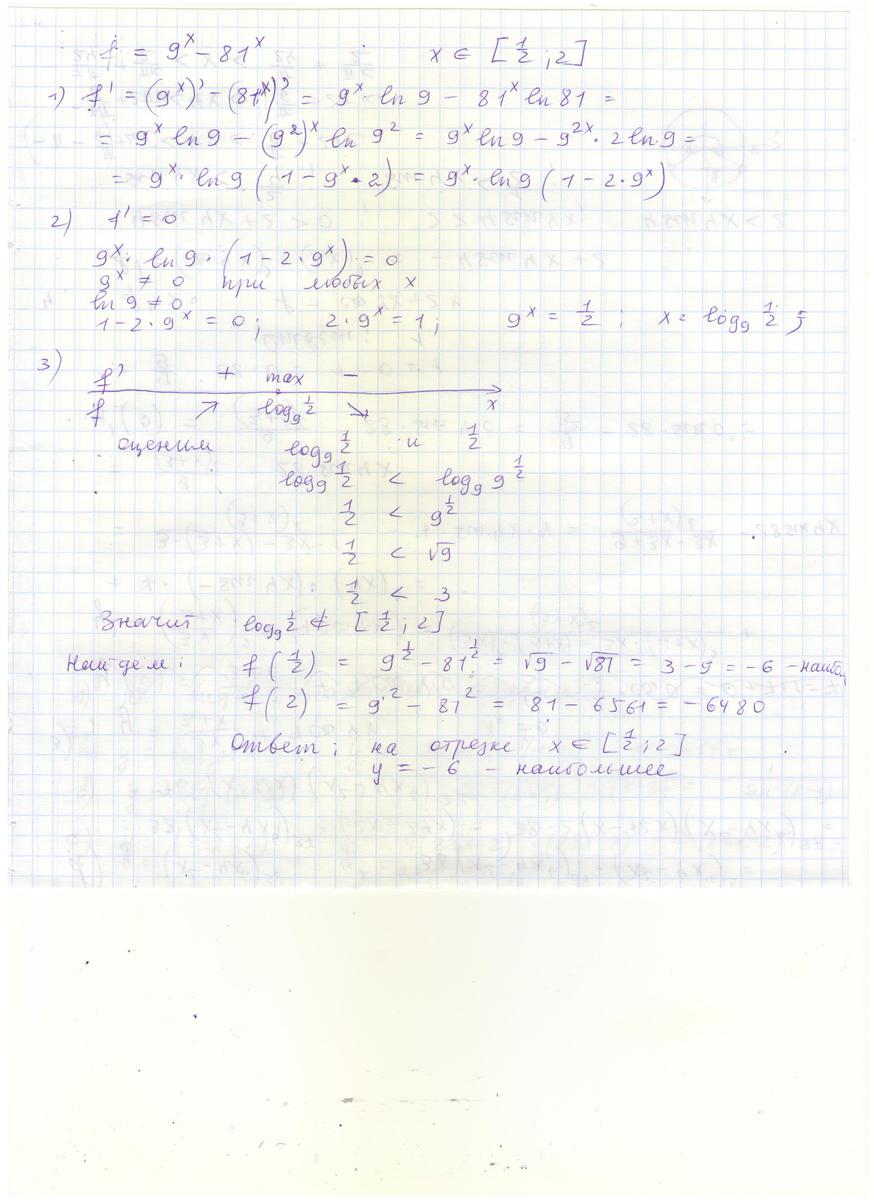 f = 9^x − 81^x    x ∈ [1/2 ; 2]
1) f' = (9^x)' − (81^x)' = 9^x · ln 9 − 81^x ln 81 =
= 9^x ln 9 − (9^2)^x ln 9^2 = 9^x ln 9 − 9^{2x} · 2 ln 9 =
= 9^x · ln 9 (1 − 9^x · 2) = 9^x · ln 9 (1 − 2·9^x)
2) f' = 0
9^x · ln 9 · (1 − 2·9^x) = 0
9^x ≠ 0 при любых x
ln 9 ≠ 0
1 − 2·9^x = 0; 2·9^x = 1; 9^x = 1/2 ; x = log_9 1/2 ;
3) f' + max −
f ↗ log_9 1/2 ↘ x
оценим log_9 1/2 и 1/2
log_9 1/2 < log_9 9^{1/2}
1/2 < 9^{1/2}
1/2 < √9
1/2 < 3
Значит log_9 1/2 ∉ [1/2 ; 2]
Найдем: f(1/2) = 9^{1/2} − 81^{1/2} = √9 − √81 = 3 − 9 = −6 − наибол
f(2) = 9^2 − 81^2 = 81 − 6561 = −6480
Ответ: на отрезке x ∈ [1/2 ; 2]
y = −6 − наибольшее